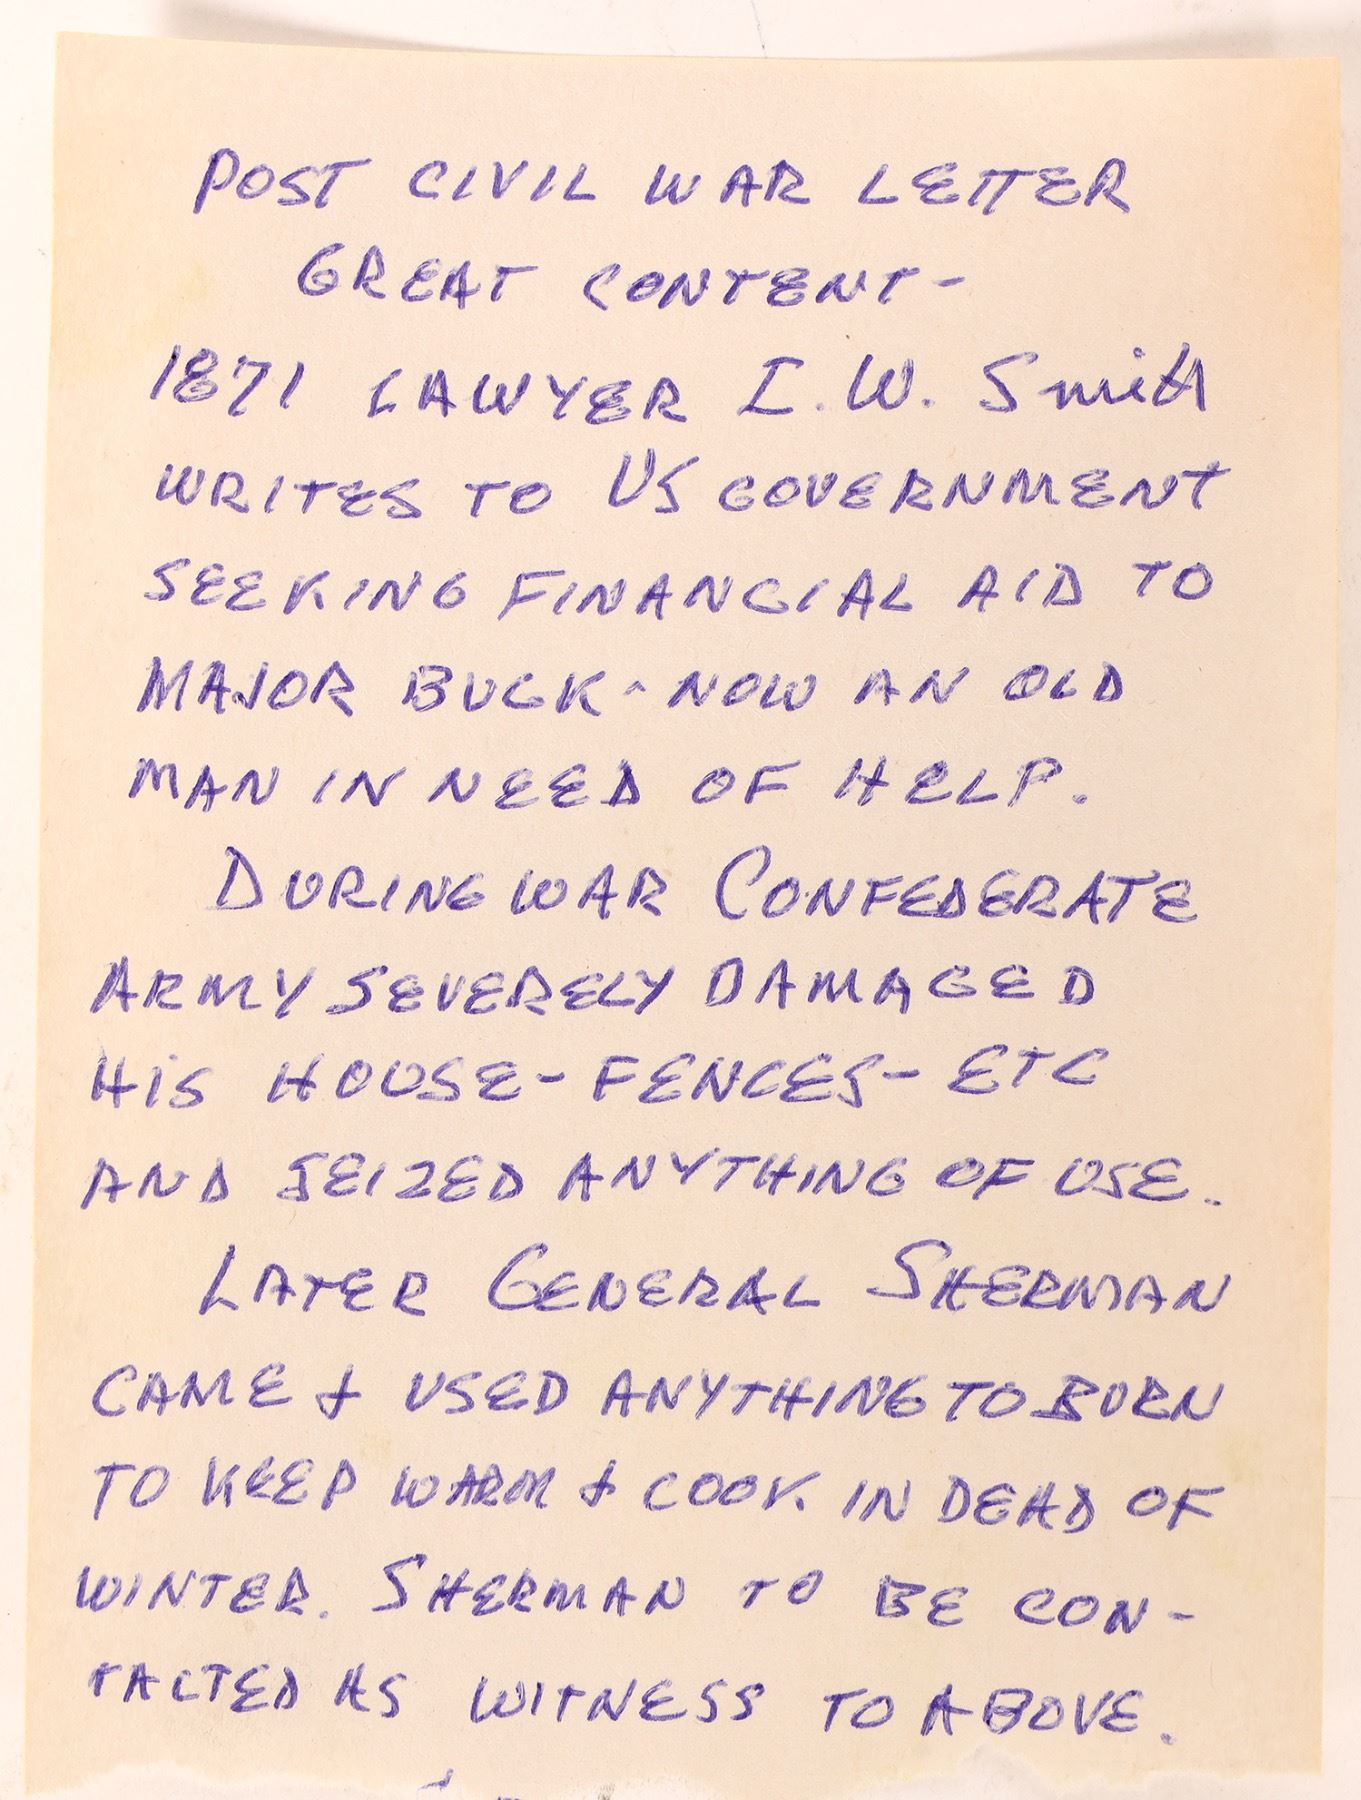 POST CIVIL WAR LETTER
GREAT CONTENT-
1871 LAWYER I. W. Smith
WRITES TO US GOVERNMENT
SEEKING FINANCIAL AID TO
MAJOR BUCK - NOW AN OLD
MAN IN NEED OF HELP.
DURING WAR CONFEDERATE
ARMY SEVERELY DAMAGED
HIS HOUSE - FENCES - ETC
AND SEIZED ANYTHING OF USE.
LATER GENERAL SHERMAN
CAME & USED ANYTHING TO BURN
TO KEEP WARM & COOK IN DEAD OF
WINTER. SHERMAN TO BE CON-
TACTED AS WITNESS TO ABOVE.